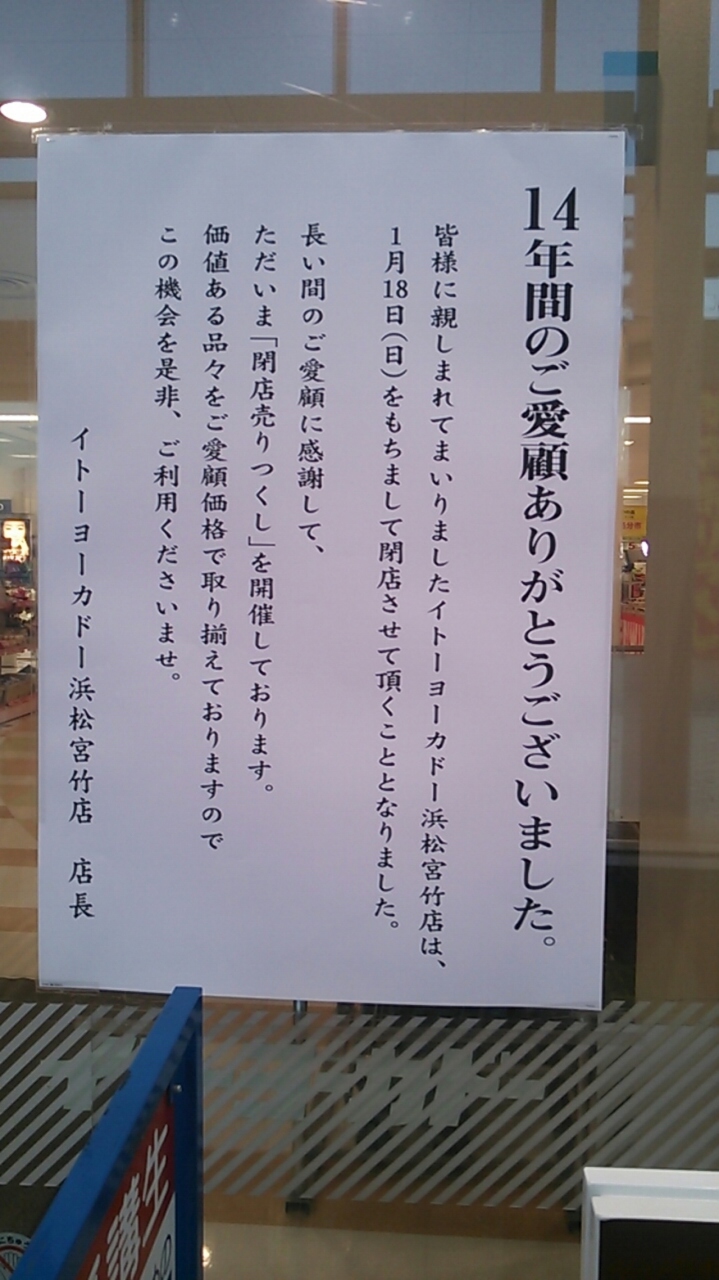 14年間のご愛顧ありがとうございました。
皆様に親しまれてまいりましたイトーヨーカドー浜松宮竹店は、
1月18日(日)をもちまして閉店させて頂くこととなりました。
長い間のご愛顧に感謝して、
ただいま「閉店売りつくし」を開催しております。
価値ある品々をご愛顧価格で取り揃えておりますので
この機会を是非、ご利用くださいませ。
イトーヨーカドー浜松宮竹店 店長
講生